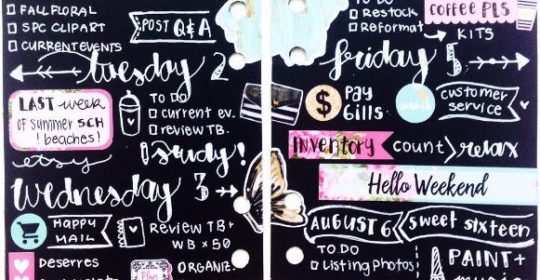 FALL FLORAL
SPC CLIPART
CURRENT EVENTS
POST Q&A
tuesday 2
LAST week
OF summer SCH
! beaches!
TO DO
current ev.
review TB.
etsy
study!
wednesday 3
HAPPY
MAIL
Review TB+
WB x 50
deserres
ORGANIZE
Plan
TO DO
Restock
Reformat
KITS
COFFEE PLS
friday 5
$
PAY
Bills
email
customer
SERVICE
INVENTORY COUNT> relax
Hello Weekend
AUGUST 6 sweet sixteen
TO DO
Listing photos
PAINT+